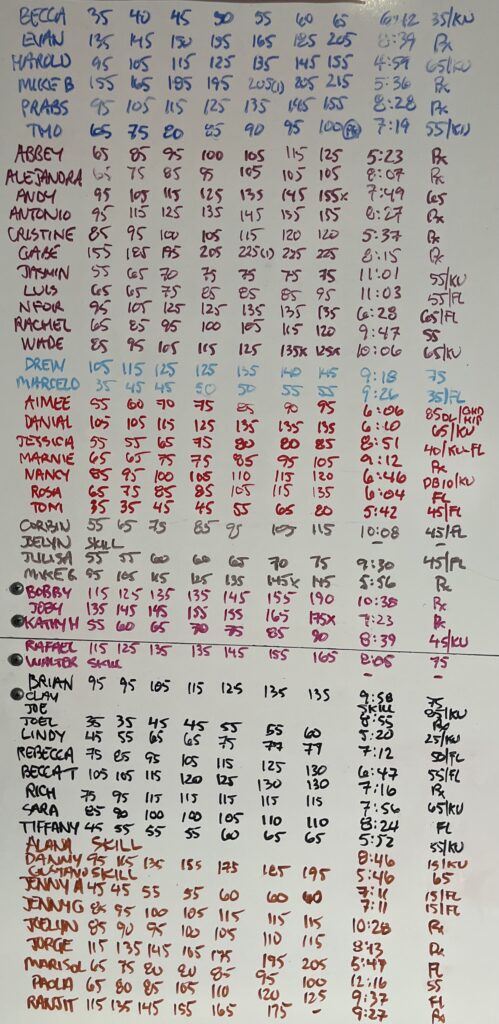 BECCA 35 40 45 50 55 60 65 6:42 35/KU
EVAN 135 145 150 155 165 185 205 8:39 Rx
HAROLD 95 105 115 125 135 145 155 4:59 65/KU
MIKE B 155 165 185 195 205(1) 205 215 5:36 Rx
PRABS 95 105 115 125 135 145 155 8:28 Rx
TMO 65 75 80 85 90 95 100 7:19 55/KU
ABBEY 65 85 95 100 105 115 125 5:23 Rx
ALEJANDRA 65 75 85 95 105 105 105 8:07 Rx
ANDY 95 105 115 125 135 145 155x 7:49 65
ANTONIO 95 115 125 135 145 155 155 8:27 Rx
CRISTINE 85 95 100 105 115 120 120 5:37 Rx
GABE 155 185 195 205 225(1) 225 225 8:15 Rx
JASMIN 55 65 70 75 75 75 75 11:01 55/KU
LUIS 65 65 75 85 85 85 95 11:03 55/FL
NFOR 95 105 125 125 135 135 135 6:28 65/FL
RACHEL 65 85 95 100 105 115 120 9:47 55
WADE 85 95 105 115 125 135x 125x 10:06 65/KU
DREW 105 115 125 125 135 140 145 9:18 75
MARCELO 35 45 45 50 50 55 55 9:26 35/FL
AIMEE 55 60 70 75 85 90 95 6:06 85DL/GHD HIP
DANIAL 105 105 115 125 135 135 135 6:10 65/KU
JESSICA 55 55 65 75 80 80 85 8:51 40/KU-FL
MARNIE 65 65 75 75 85 95 105 9:12 Rx
NANCY 85 95 100 105 110 115 120 6:46 DB10/KU
ROSA 65 75 85 85 105 115 135 6:04 FL
TOM 35 35 45 45 55 65 80 5:42 45/FL
CORBIN 55 65 75 85 95 105 115 10:08 45/FL
JOELYN SKILL - -
JULISA 55 55 60 60 65 70 75 9:30 45/FL
MIKE G 95 105 115 125 135 145x 145 5:56 Rx
BOBBY 115 125 135 135 145 155 190 10:38 Rx
JOBY 135 145 145 155 155 165 175x 7:23 Rx
KATHY H 55 60 65 70 75 85 90 8:39 45/KU
RAFAEL 115 125 135 135 145 155 165 8:05 75
WALTER SKILL - -
BRIAN 95 95 105 115 125 135 135 9:58 75
CLAY SKILL
JOE 8:55
JOEL 35 35 45 45 55 55 60 5:20 25/KU
LINDY 45 55 65 65 75 77 77 7:12 50/FL
REBECCA 75 85 95 105 115 125 130 6:47 55/FL
BECCA T 105 105 115 120 125 130 130 7:16 Rx
RICH 75 95 115 115 115 115 115 7:56 65/KU
SARA 85 90 100 100 105 110 110 8:24 FL
TIFFANY 45 55 55 55 60 65 65 5:52 55/KU
ALANA SKILL
DANNY 95 115 135 155 175 185 195 8:46 15/KU
GUSTAVO SKILL 5:46 65
JENNY A 45 45 55 55 60 60 60 7:11 15/FL
JENNY G 85 95 100 105 115 115 115 7:11 15/FL
JOELYN 85 90 95 100 105 110 115 10:28 Rx
JORGE 115 135 145 165 175 195 205 8:13 Rx
MARISOL 65 75 80 80 85 95 100 5:47 FL
PAOLA 65 80 85 105 110 120 125 12:16 55
RANJIT 115 135 145 155 165 175 - 9:37 FL
9:27 Rx